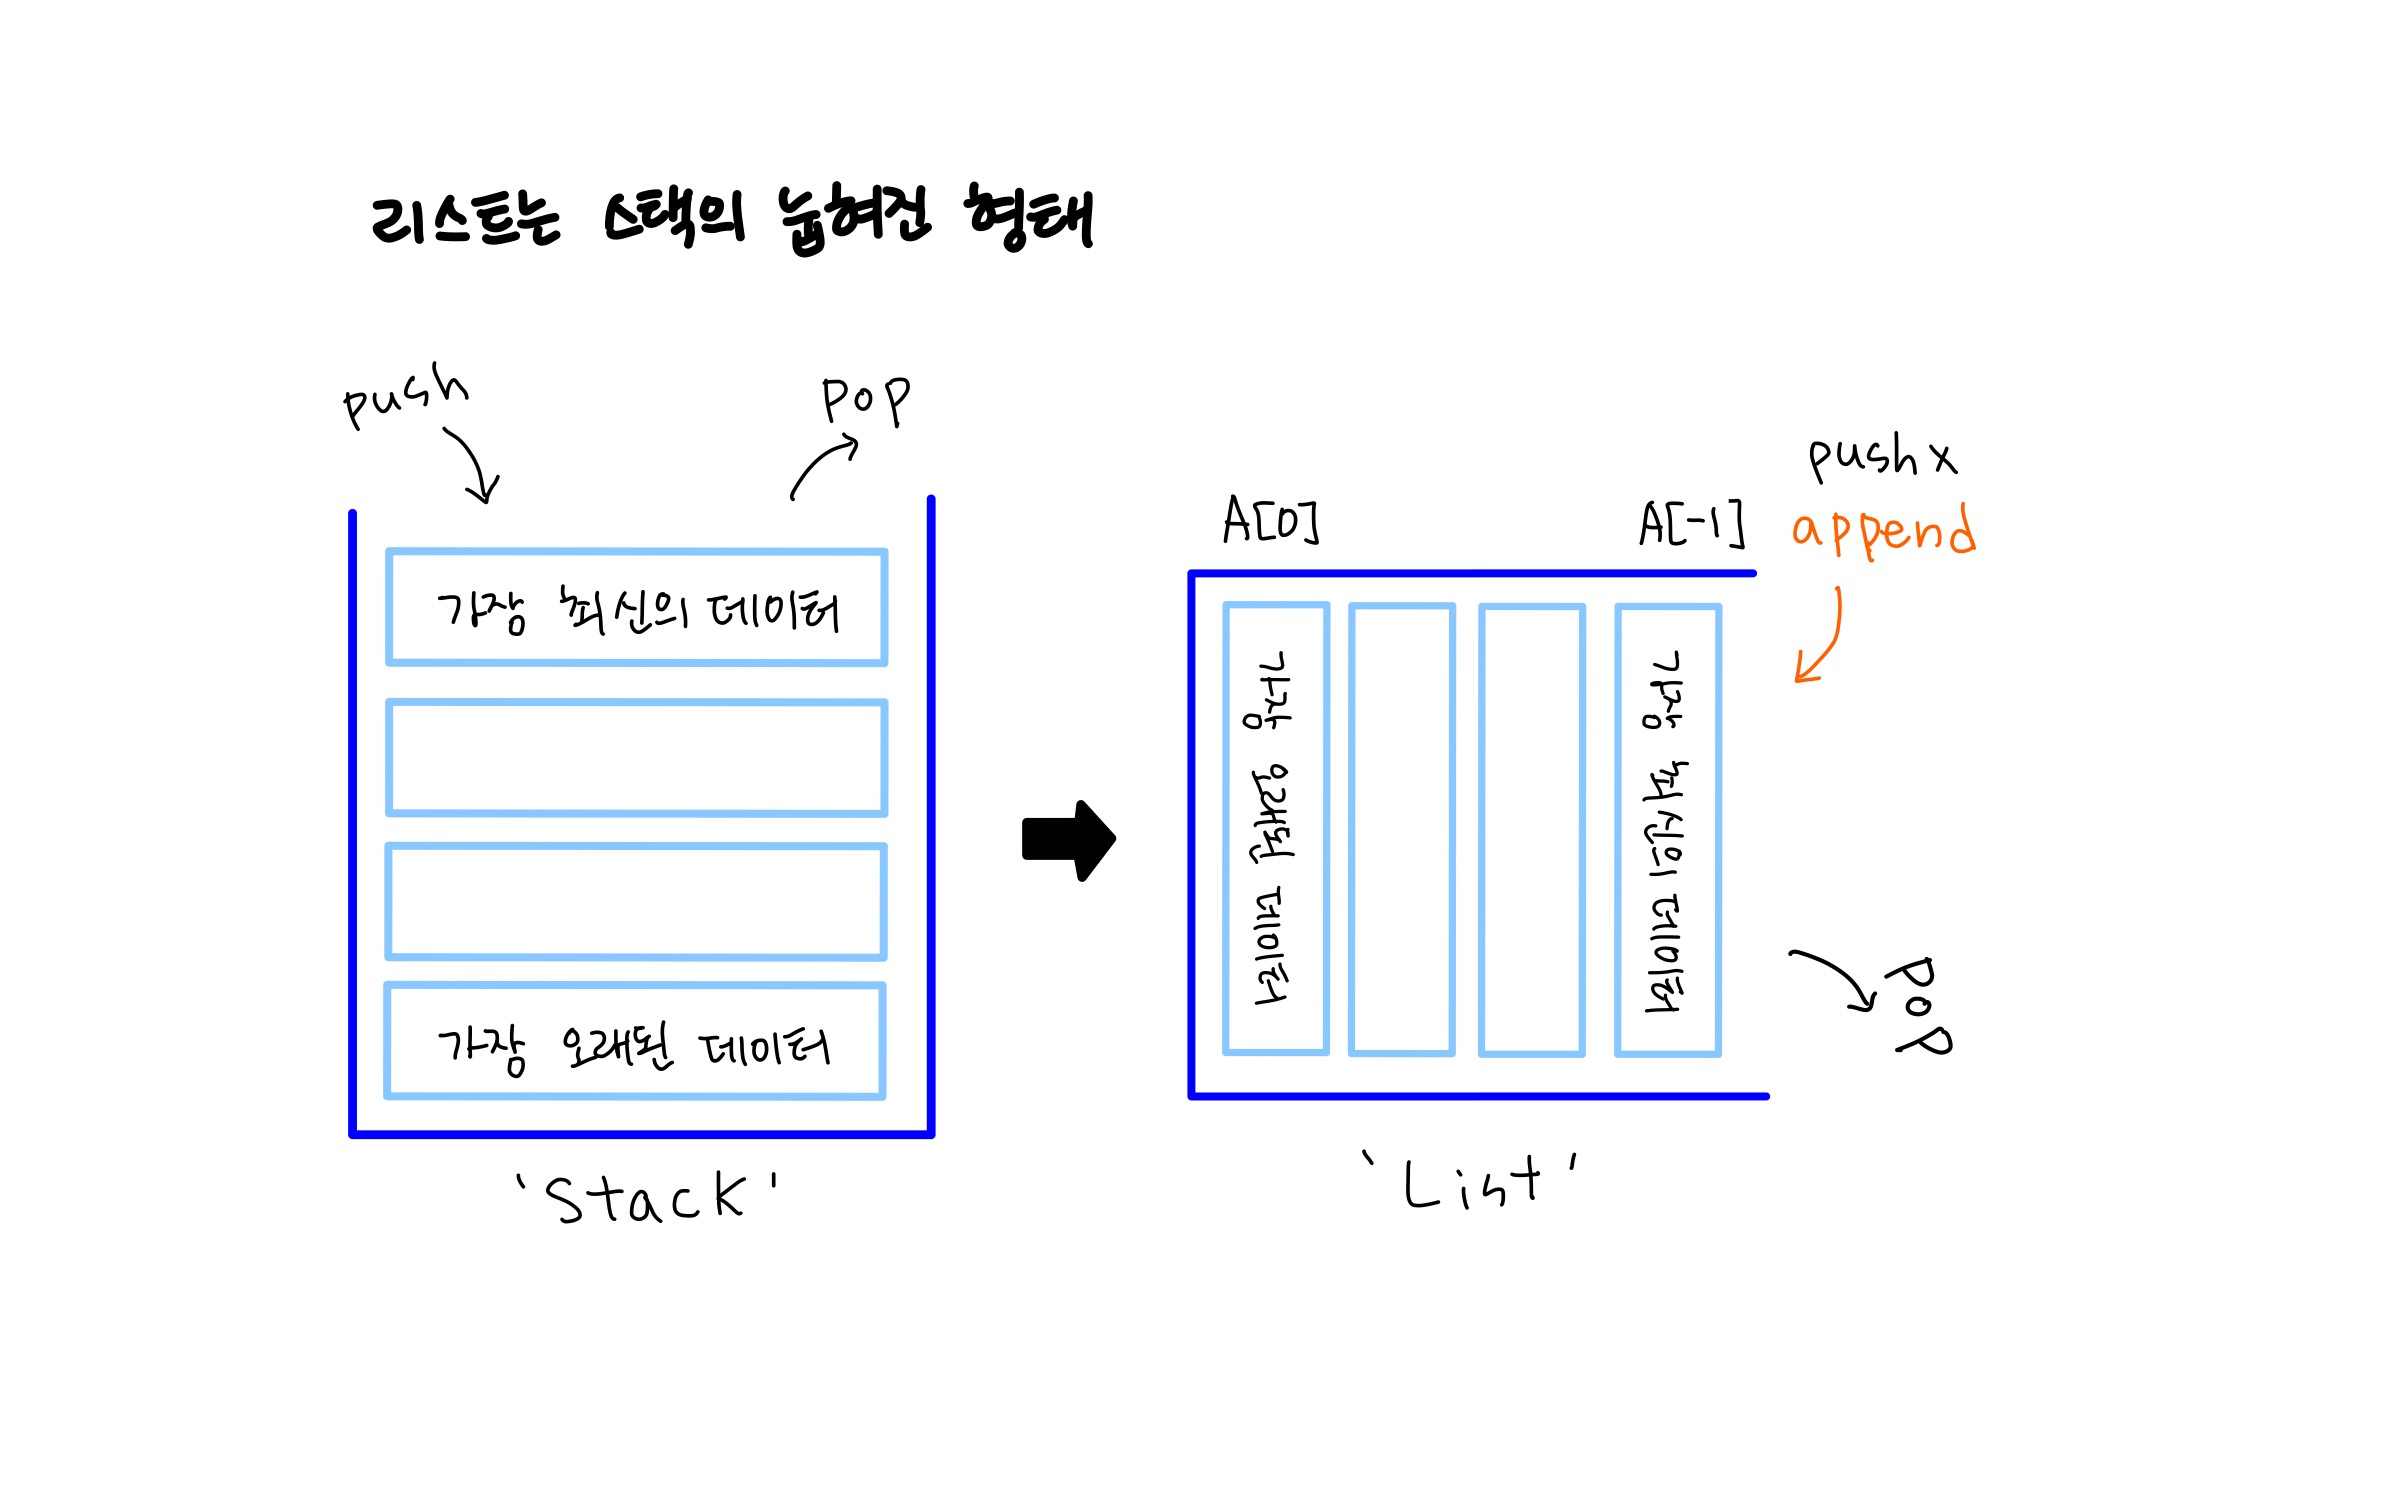 리스트는 스택의 눕혀진 형태
push
pop
가장 최신의 데이터
가장 오래된 데이터
'Stack'
push x
append
A[0]
A[-1]
가장 오래된 데이터
가장 최신의 데이터
pop
'List'